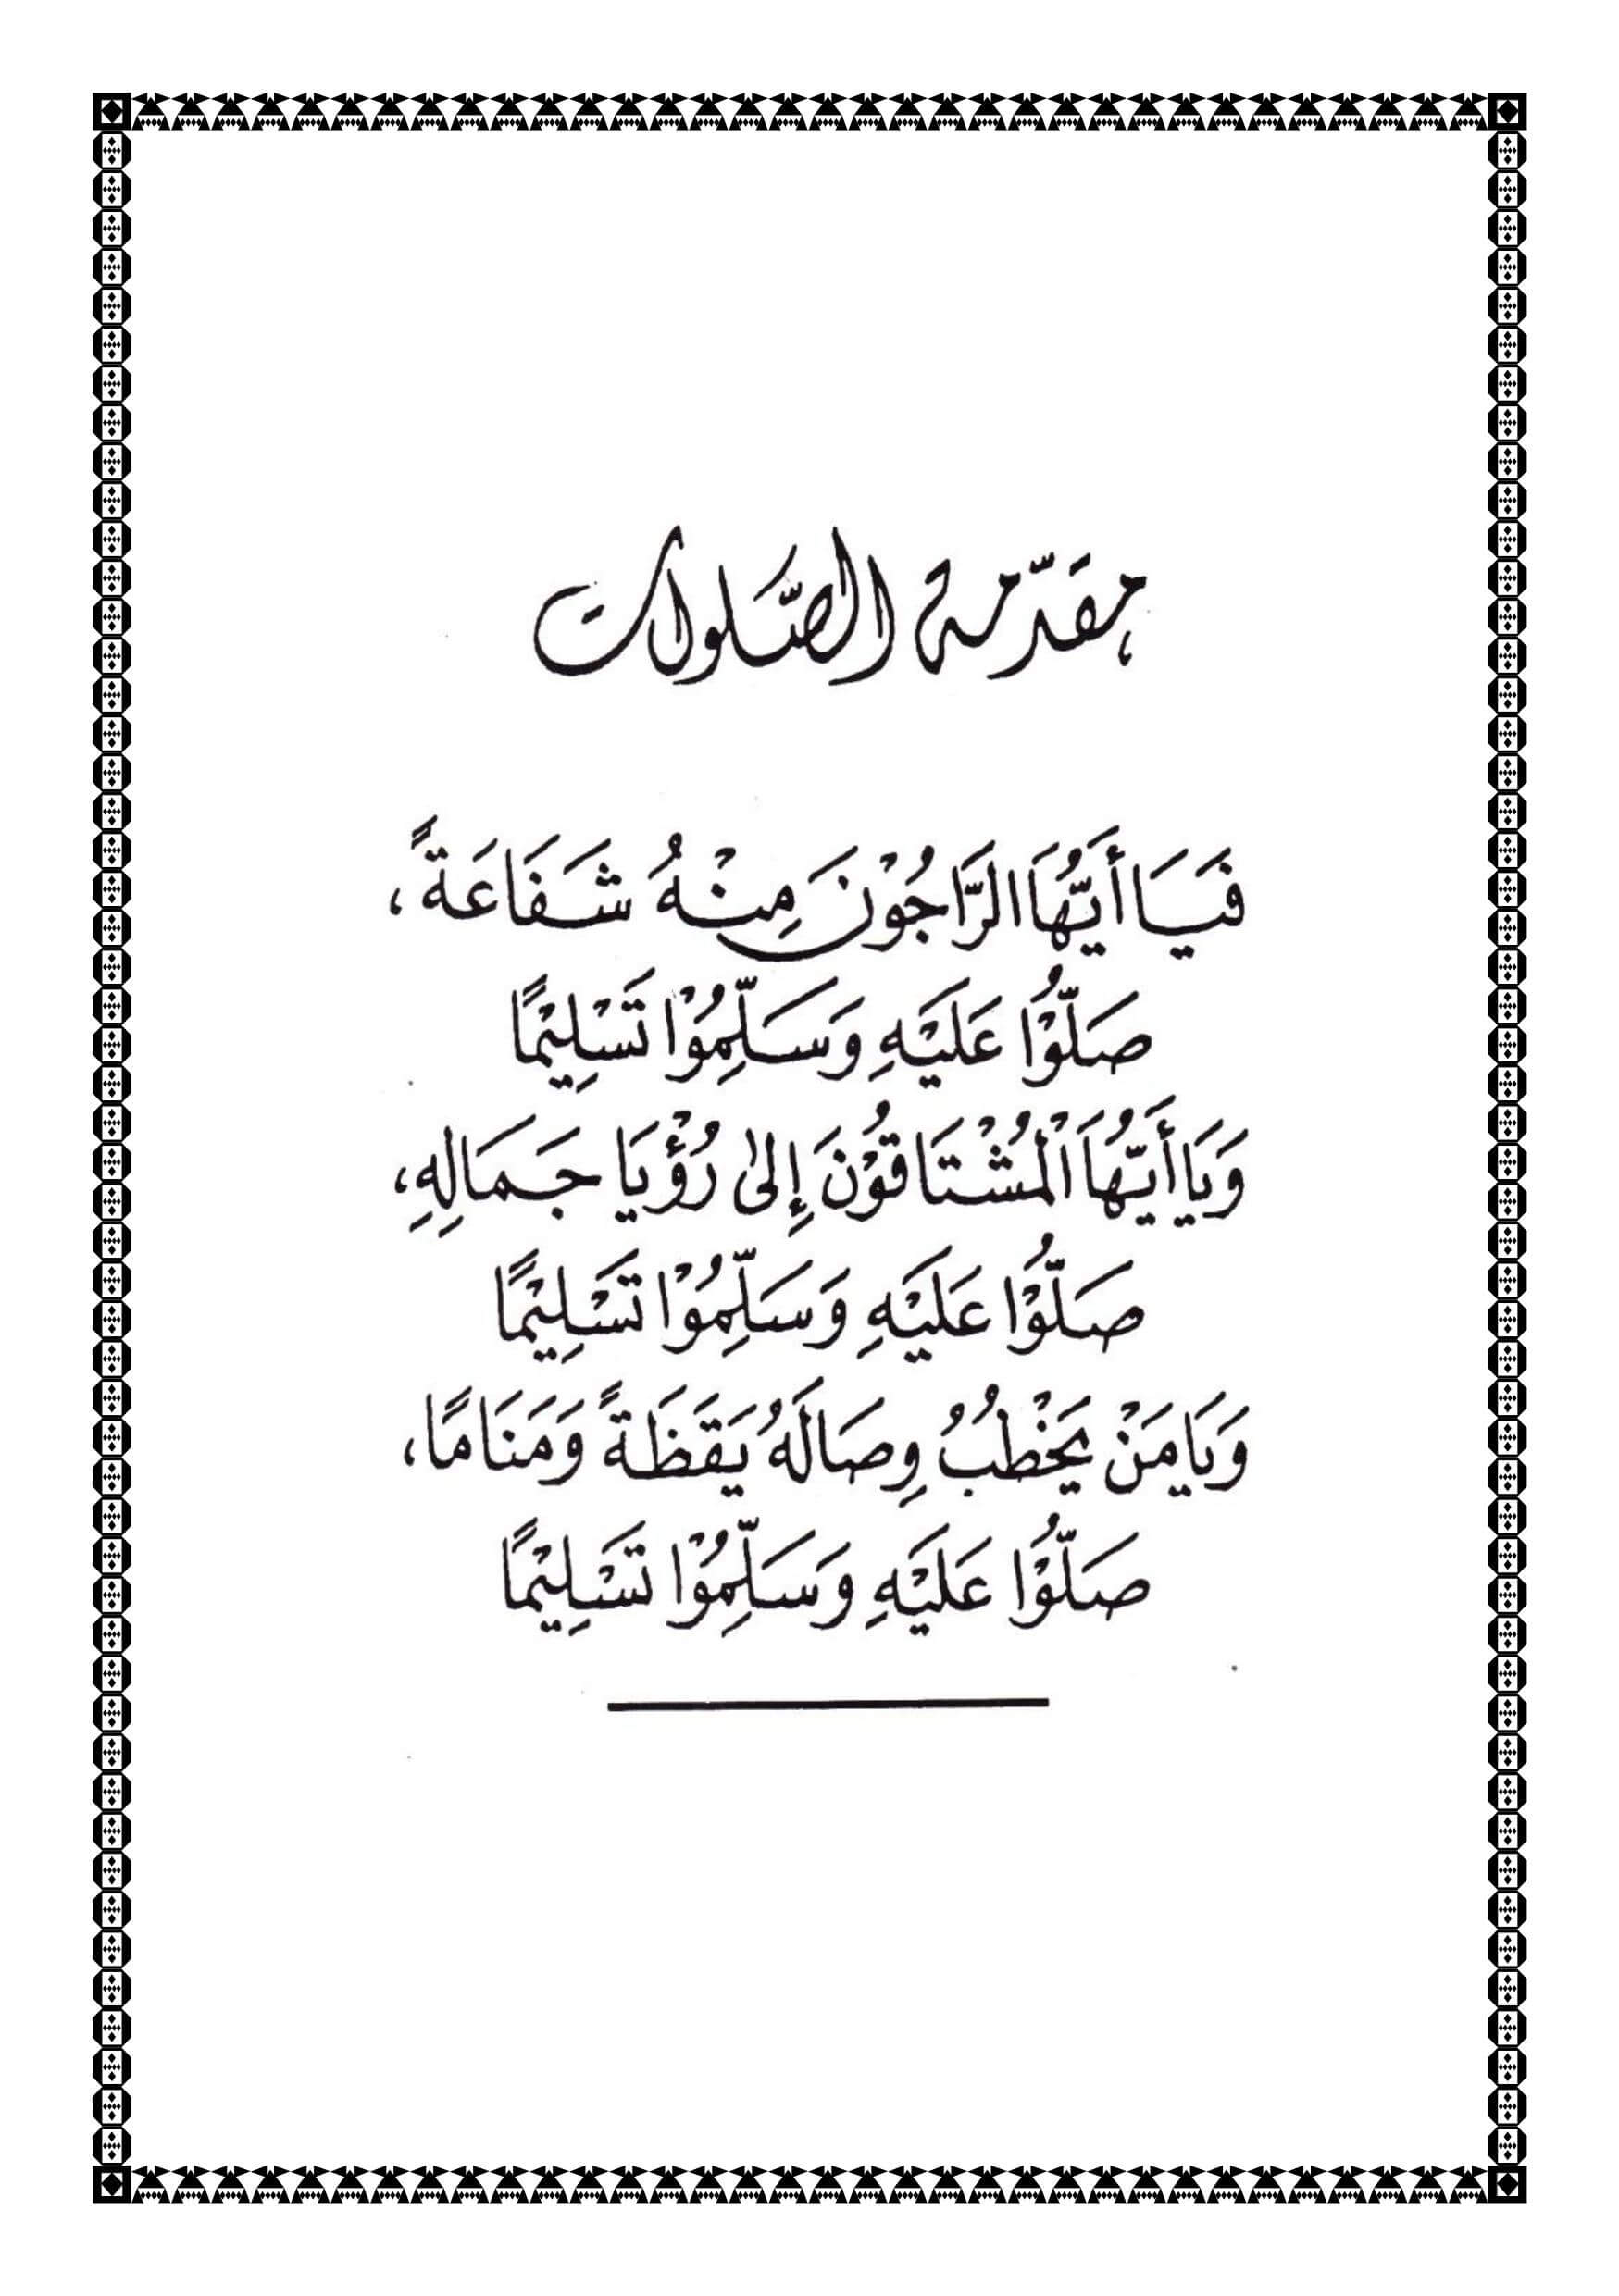 مقدّمة الصَّلوات
فَيَا أَيُّهَا الرَّاجُوْنَ مِنْهُ شَفَاعَةً،
صَلُّوْا عَلَيْهِ وَسَلِّمُوْا تَسْلِيْمًا
وَيَا أَيُّهَا الْمُشْتَاقُوْنَ إِلىٰ رُؤْيَا جَمَالِهِ،
صَلُّوْا عَلَيْهِ وَسَلِّمُوْا تَسْلِيْمًا
وَيَا مَنْ يَخْطُبُ وِصَالَهُ يَقَظَةً وَمَنَامًا،
صَلُّوْا عَلَيْهِ وَسَلِّمُوْا تَسْلِيْمًا